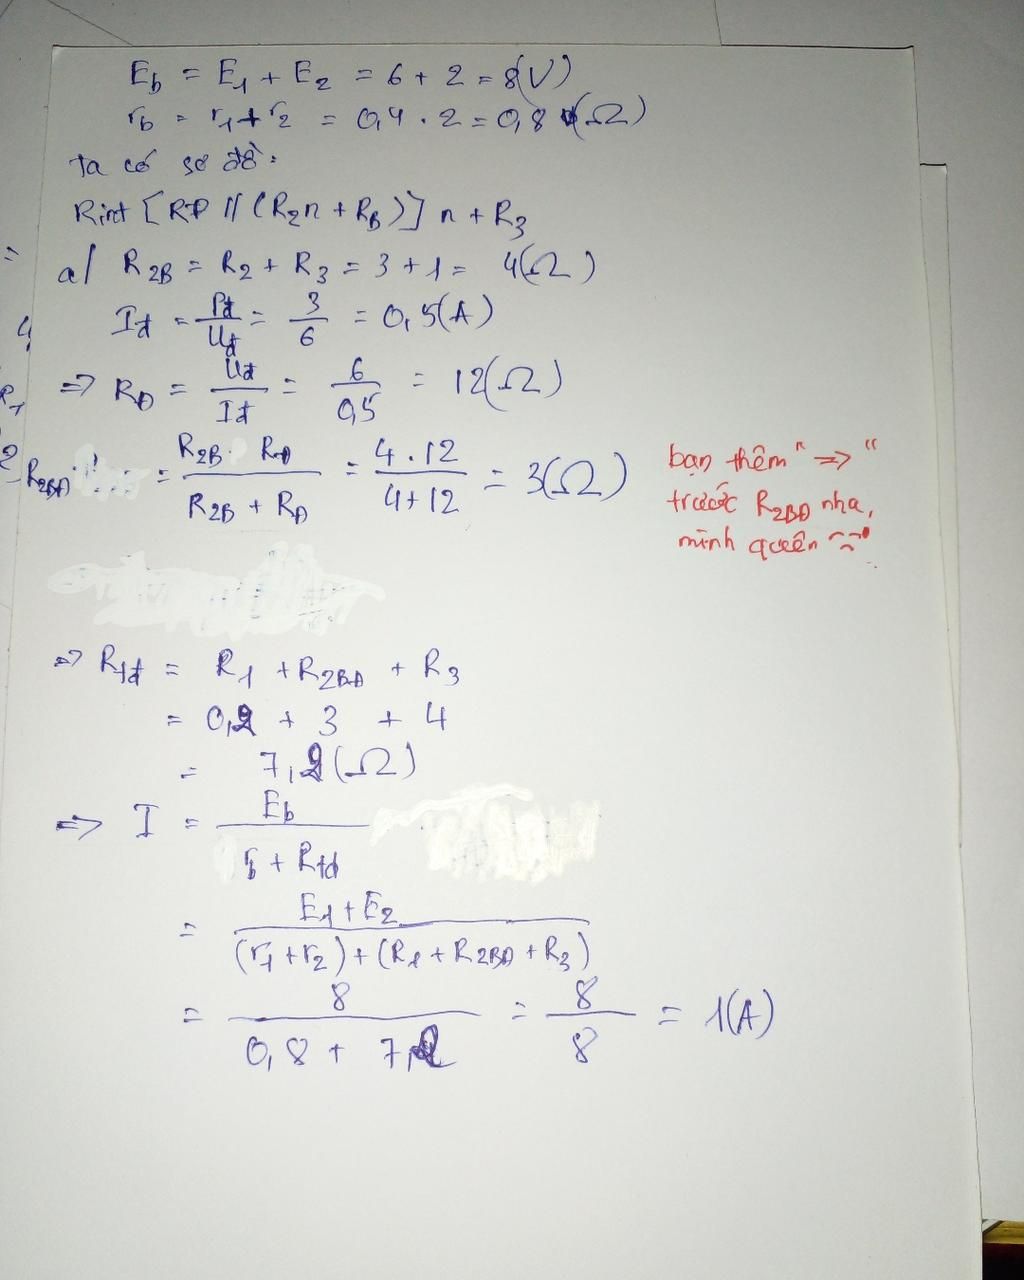 E_b = E_1 + E_2 = 6 + 2 = 8(V)
r_b = r_1 + r_2 = 0,4 . 2 = 0,8 (Ω)
Ta có sơ đồ:
R_1nt [RĐ // (R_2n + R_B)] n + R_3
a/ R_2B = R_2 + R_3 = 3 + 1 = 4(Ω)
I_đ = P_đ / U_đ = 3 / 6 = 0,5(A)
=> R_Đ = U_đ / I_đ = 6 / 0,5 = 12(Ω)
R_2BĐ = R_2B . R_Đ / R_2B + R_Đ = 4 . 12 / 4 + 12 = 3(Ω)
bạn thêm "=>"
trước R_2BĐ nha,
mình quên
=> R_tđ = R_1 + R_2BĐ + R_3
= 0,2 + 3 + 4
= 7,2(Ω)
=> I = E_b / r_b + R_tđ
= E_1 + E_2 / (r_1 + r_2) + (R_1 + R_2BĐ + R_3)
= 8 / 0,8 + 7,2 = 8 / 8 = 1(A)